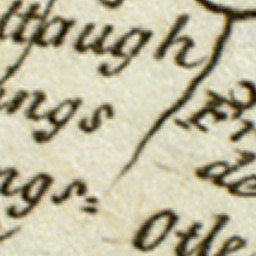 ttaugh
ings
ngs=
de
Otle